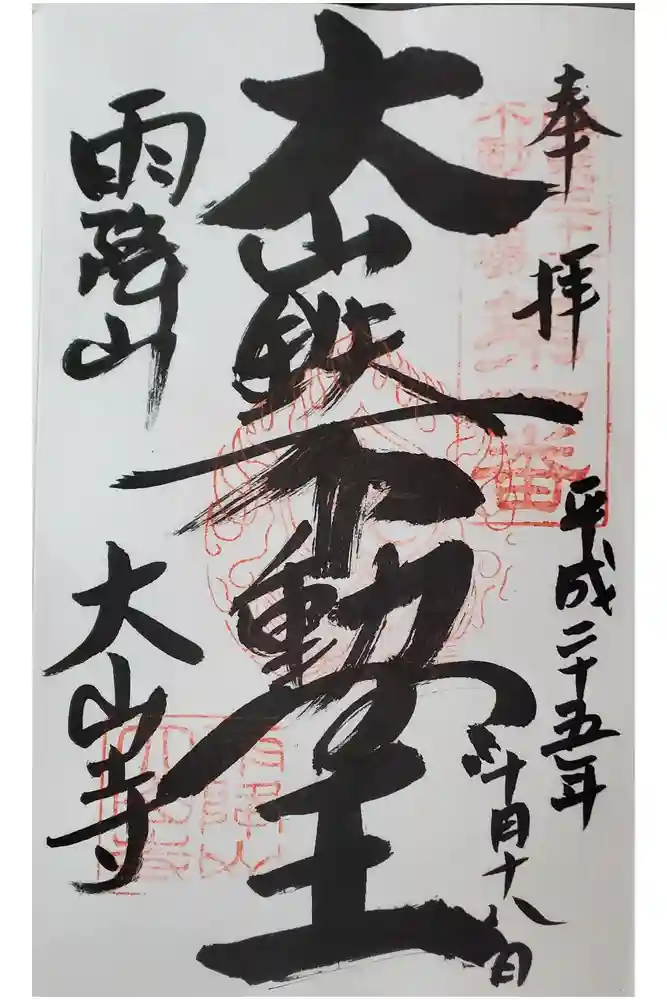 奉拝
関東三十六
不動霊場
第一番
平成二十五年
十月十八日
大山鉄不動明王
雨降山
大山寺